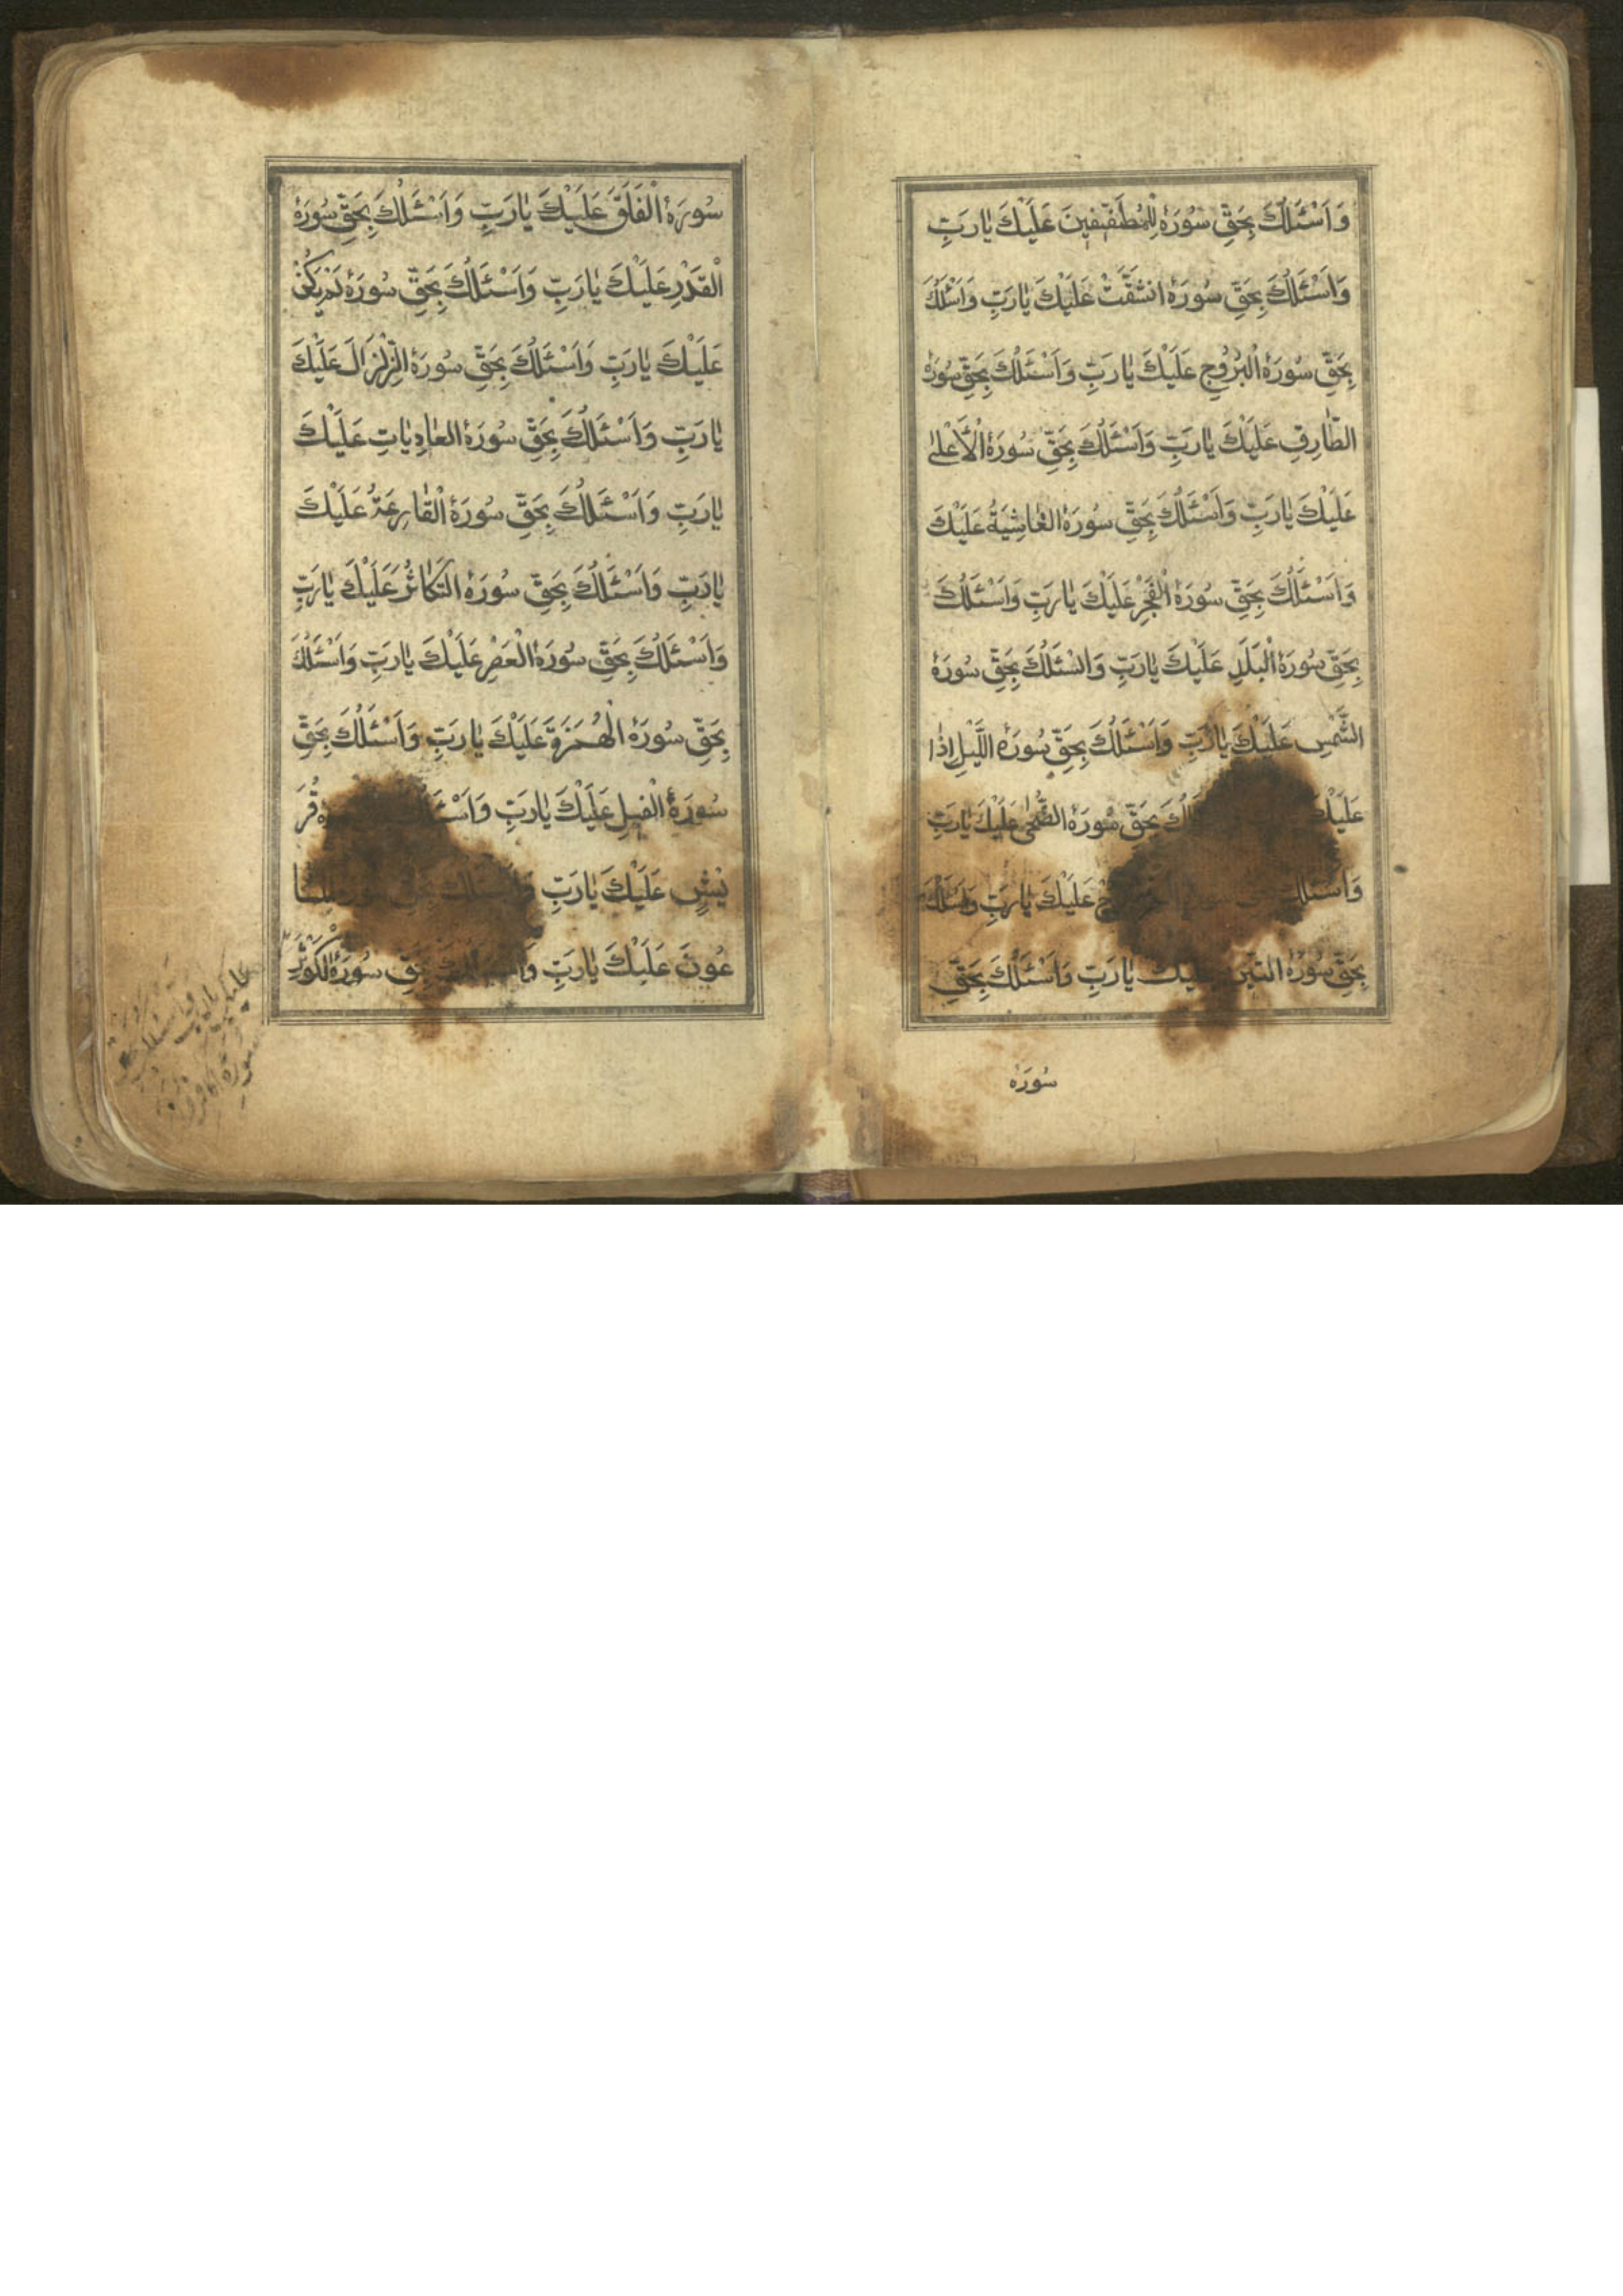 وَاَسْئَلُكَ بِحَقِّ سُورَةِ الْمُطَفِّفِينَ عَلَيْكَ يٰارَبِّ
وَاَسْئَلُكَ بِحَقِّ سُورَةِ انْشَقَّتْ عَلَيْكَ يٰارَبِّ وَاَسْئَلُكَ
بِحَقِّ سُورَةِ الْبُرُوجِ عَلَيْكَ يٰارَبِّ وَاَسْئَلُكَ بِحَقِّ سُورَةِ
الطّٰارِقِ عَلَيْكَ يٰارَبِّ وَاَسْئَلُكَ بِحَقِّ سُورَةِ الْاَعْلىٰ
عَلَيْكَ يٰارَبِّ وَاَسْئَلُكَ بِحَقِّ سُورَةِ الْغٰاشِيَةِ عَلَيْكَ
وَاَسْئَلُكَ بِحَقِّ سُورَةِ الْفَجْرِ عَلَيْكَ يٰارَبِّ وَاَسْئَلُكَ
بِحَقِّ سُورَةِ الْبَلَدِ عَلَيْكَ يٰارَبِّ وَاَسْئَلُكَ بِحَقِّ سُورَةِ
الشَّمْسِ عَلَيْكَ يٰارَبِّ وَاَسْئَلُكَ بِحَقِّ سُورَةِ اللَّيْلِ اِذٰا
عَلَيْكَ بِحَقِّ سُورَةِ الضُّحٰى عَلَيْكَ يٰارَبِّ
وَاَسْئَلُكَ عَلَيْكَ يٰارَبِّ وَاَسْئَلُكَ
بِحَقِّ سُورَةِ التّينِ عَلَيْكَ يٰارَبِّ وَاَسْئَلُكَ بِحَقِّ
سُورَة
سُورَةِ الْفَلَقِ عَلَيْكَ يٰارَبِّ وَاَسْئَلُكَ بِحَقِّ سُورَةِ
الْقَدْرِ عَلَيْكَ يٰارَبِّ وَاَسْئَلُكَ بِحَقِّ سُورَةِ لَمْ يَكُنْ
عَلَيْكَ يٰارَبِّ وَاَسْئَلُكَ بِحَقِّ سُورَةِ الزِّلْزٰالَ عَلَيْكَ
يٰارَبِّ وَاَسْئَلُكَ بِحَقِّ سُورَةِ الْعٰادِيٰاتِ عَلَيْكَ
يٰارَبِّ وَاَسْئَلُكَ بِحَقِّ سُورَةِ الْقٰارِعَةُ عَلَيْكَ
يٰارَبِّ وَاَسْئَلُكَ بِحَقِّ سُورَةِ التَّكٰاثُرَ عَلَيْكَ يٰارَبِّ
وَاَسْئَلُكَ بِحَقِّ سُورَةِ الْعَصْرِ عَلَيْكَ يٰارَبِّ وَاَسْئَلُكَ
بِحَقِّ سُورَةِ الْهُمَزَةِ عَلَيْكَ يٰارَبِّ وَاَسْئَلُكَ بِحَقِّ
سُورَةِ الْفِيلِ عَلَيْكَ يٰارَبِّ قُرَ
يْشٍ عَلَيْكَ يٰارَبِّ وَاَسْئَلُكَ بِحَقِّ
عُونَ عَلَيْكَ يٰارَبِّ بِحَقِّ سُورَةِ الْكَوْثَرِ
عليك يارب
واسئلك بحق
سورة